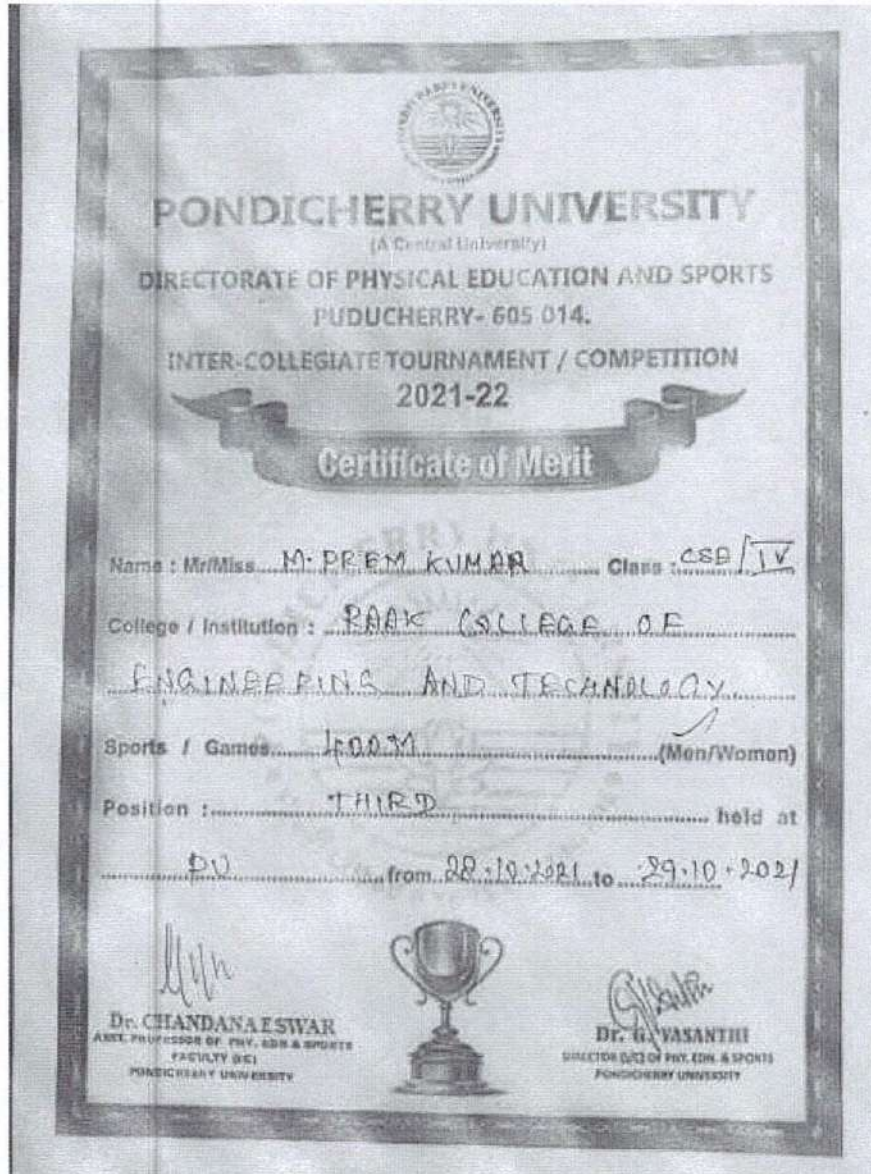 PONDICHERRY UNIVERSITY
(A Central University)
DIRECTORATE OF PHYSICAL EDUCATION AND SPORTS
PUDUCHERRY- 605 014.
INTER-COLLEGIATE TOURNAMENT / COMPETITION
2021-22
Certificate of Merit
Name : Mr/Miss M. PREM KUMAR Class : CSE / IV
College / Institution : RAAK COLLEGE OF
ENGINEERING AND TECHNOLOGY
Sports / Games 400M (Men/Women)
Position : THIRD held at
PU from 28.10.2021 to 29.10.2021
Dr. CHANDANA ESWAR
ASST. PROFESSOR OF PHY. EDN & SPORTS
FACULTY
PONDICHERRY UNIVERSITY
Dr. G. VASANTHI
DIRECTOR (I/C) OF PHY. EDN. & SPORTS
PONDICHERRY UNIVERSITY